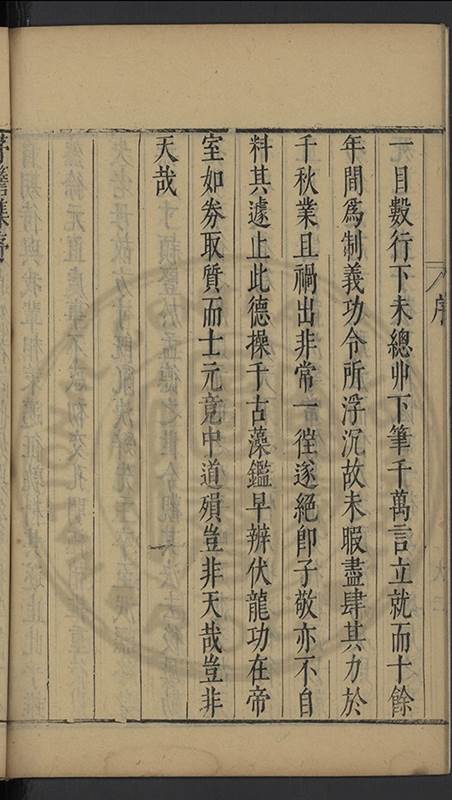 序
一目數行下未總丱下筆千萬言立就而十餘
年間爲制義功令所浮沉故未暇盡肆其力於
千秋業且禍出非常一徃遂絕卽子敬亦不自
料其遽止此德操千古藻鑑早辨伏龍功在帝
室如劵取質而士元竟中道殞豈非天哉豈非
天哉